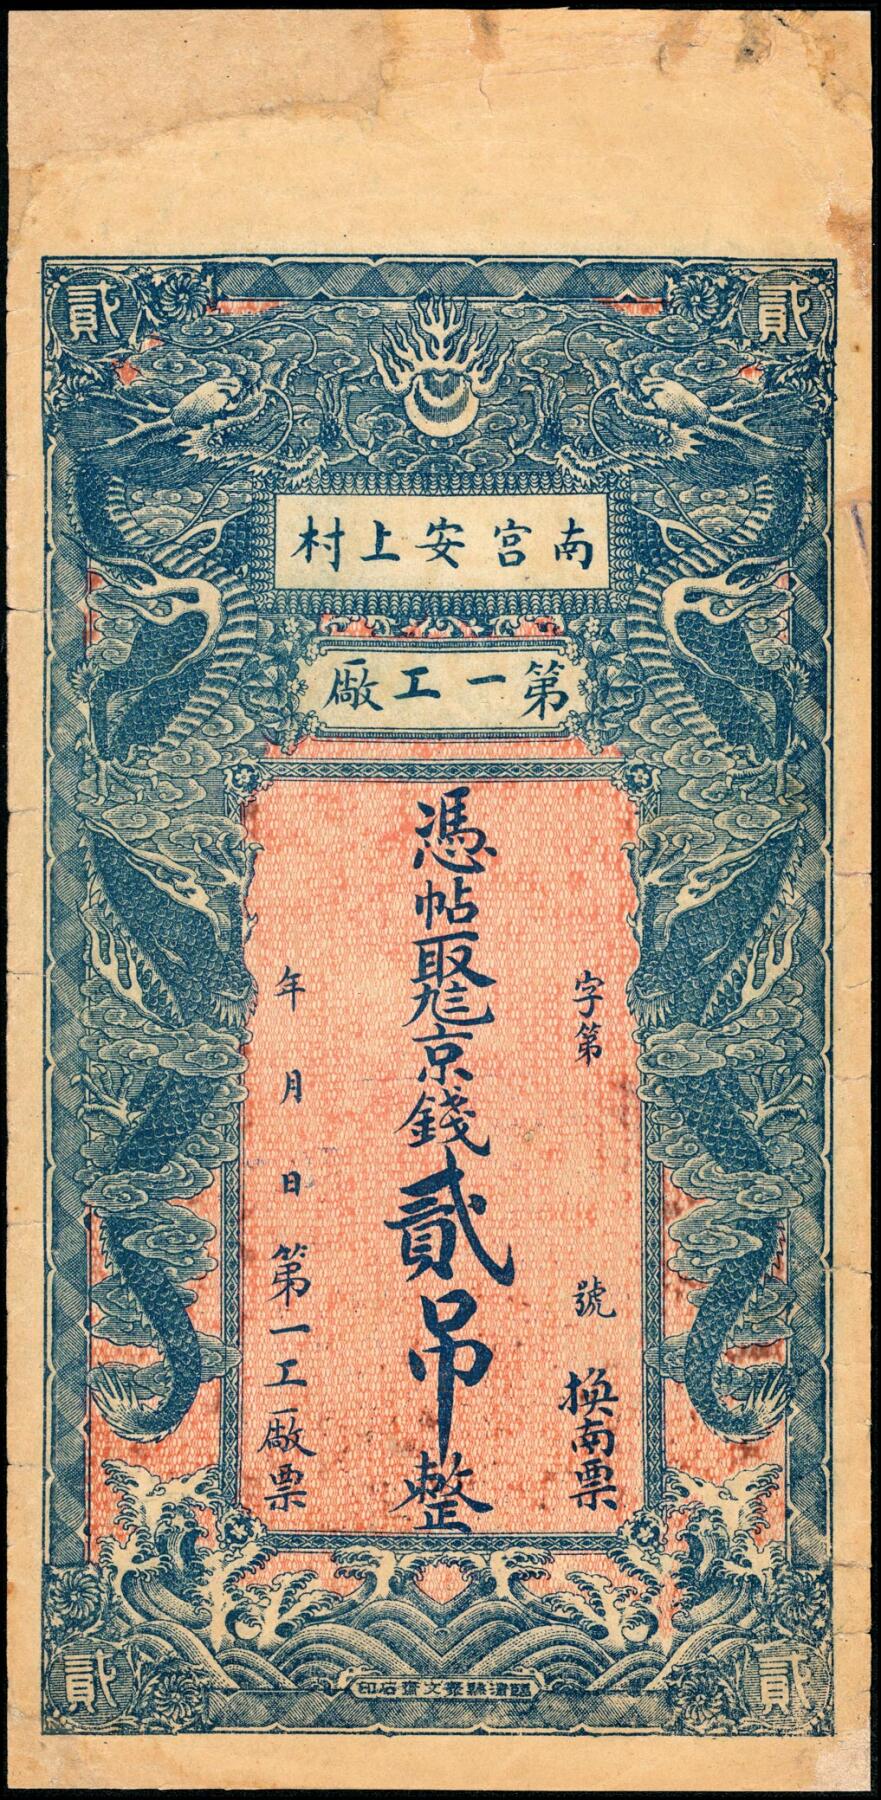 貳
貳
南宮安上村
第一工廠
字第 號 換南票
憑帖取九京錢貳吊整
年 月 日 第一工廠票
貳
貳